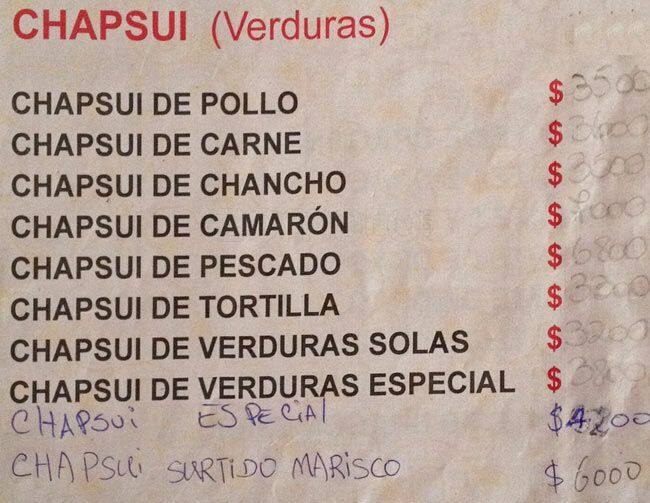 CHAPSUI (Verduras)
CHAPSUI DE POLLO $ 3500
CHAPSUI DE CARNE $
CHAPSUI DE CHANCHO $ 3500
CHAPSUI DE CAMARÓN $
CHAPSUI DE PESCADO $ 6800
CHAPSUI DE TORTILLA $ 3200
CHAPSUI DE VERDURAS SOLAS $ 3200
CHAPSUI DE VERDURAS ESPECIAL $ 3800
CHAPSUI ESPECIAL $ 4200
CHAPSUI SURTIDO MARISCO $ 6000